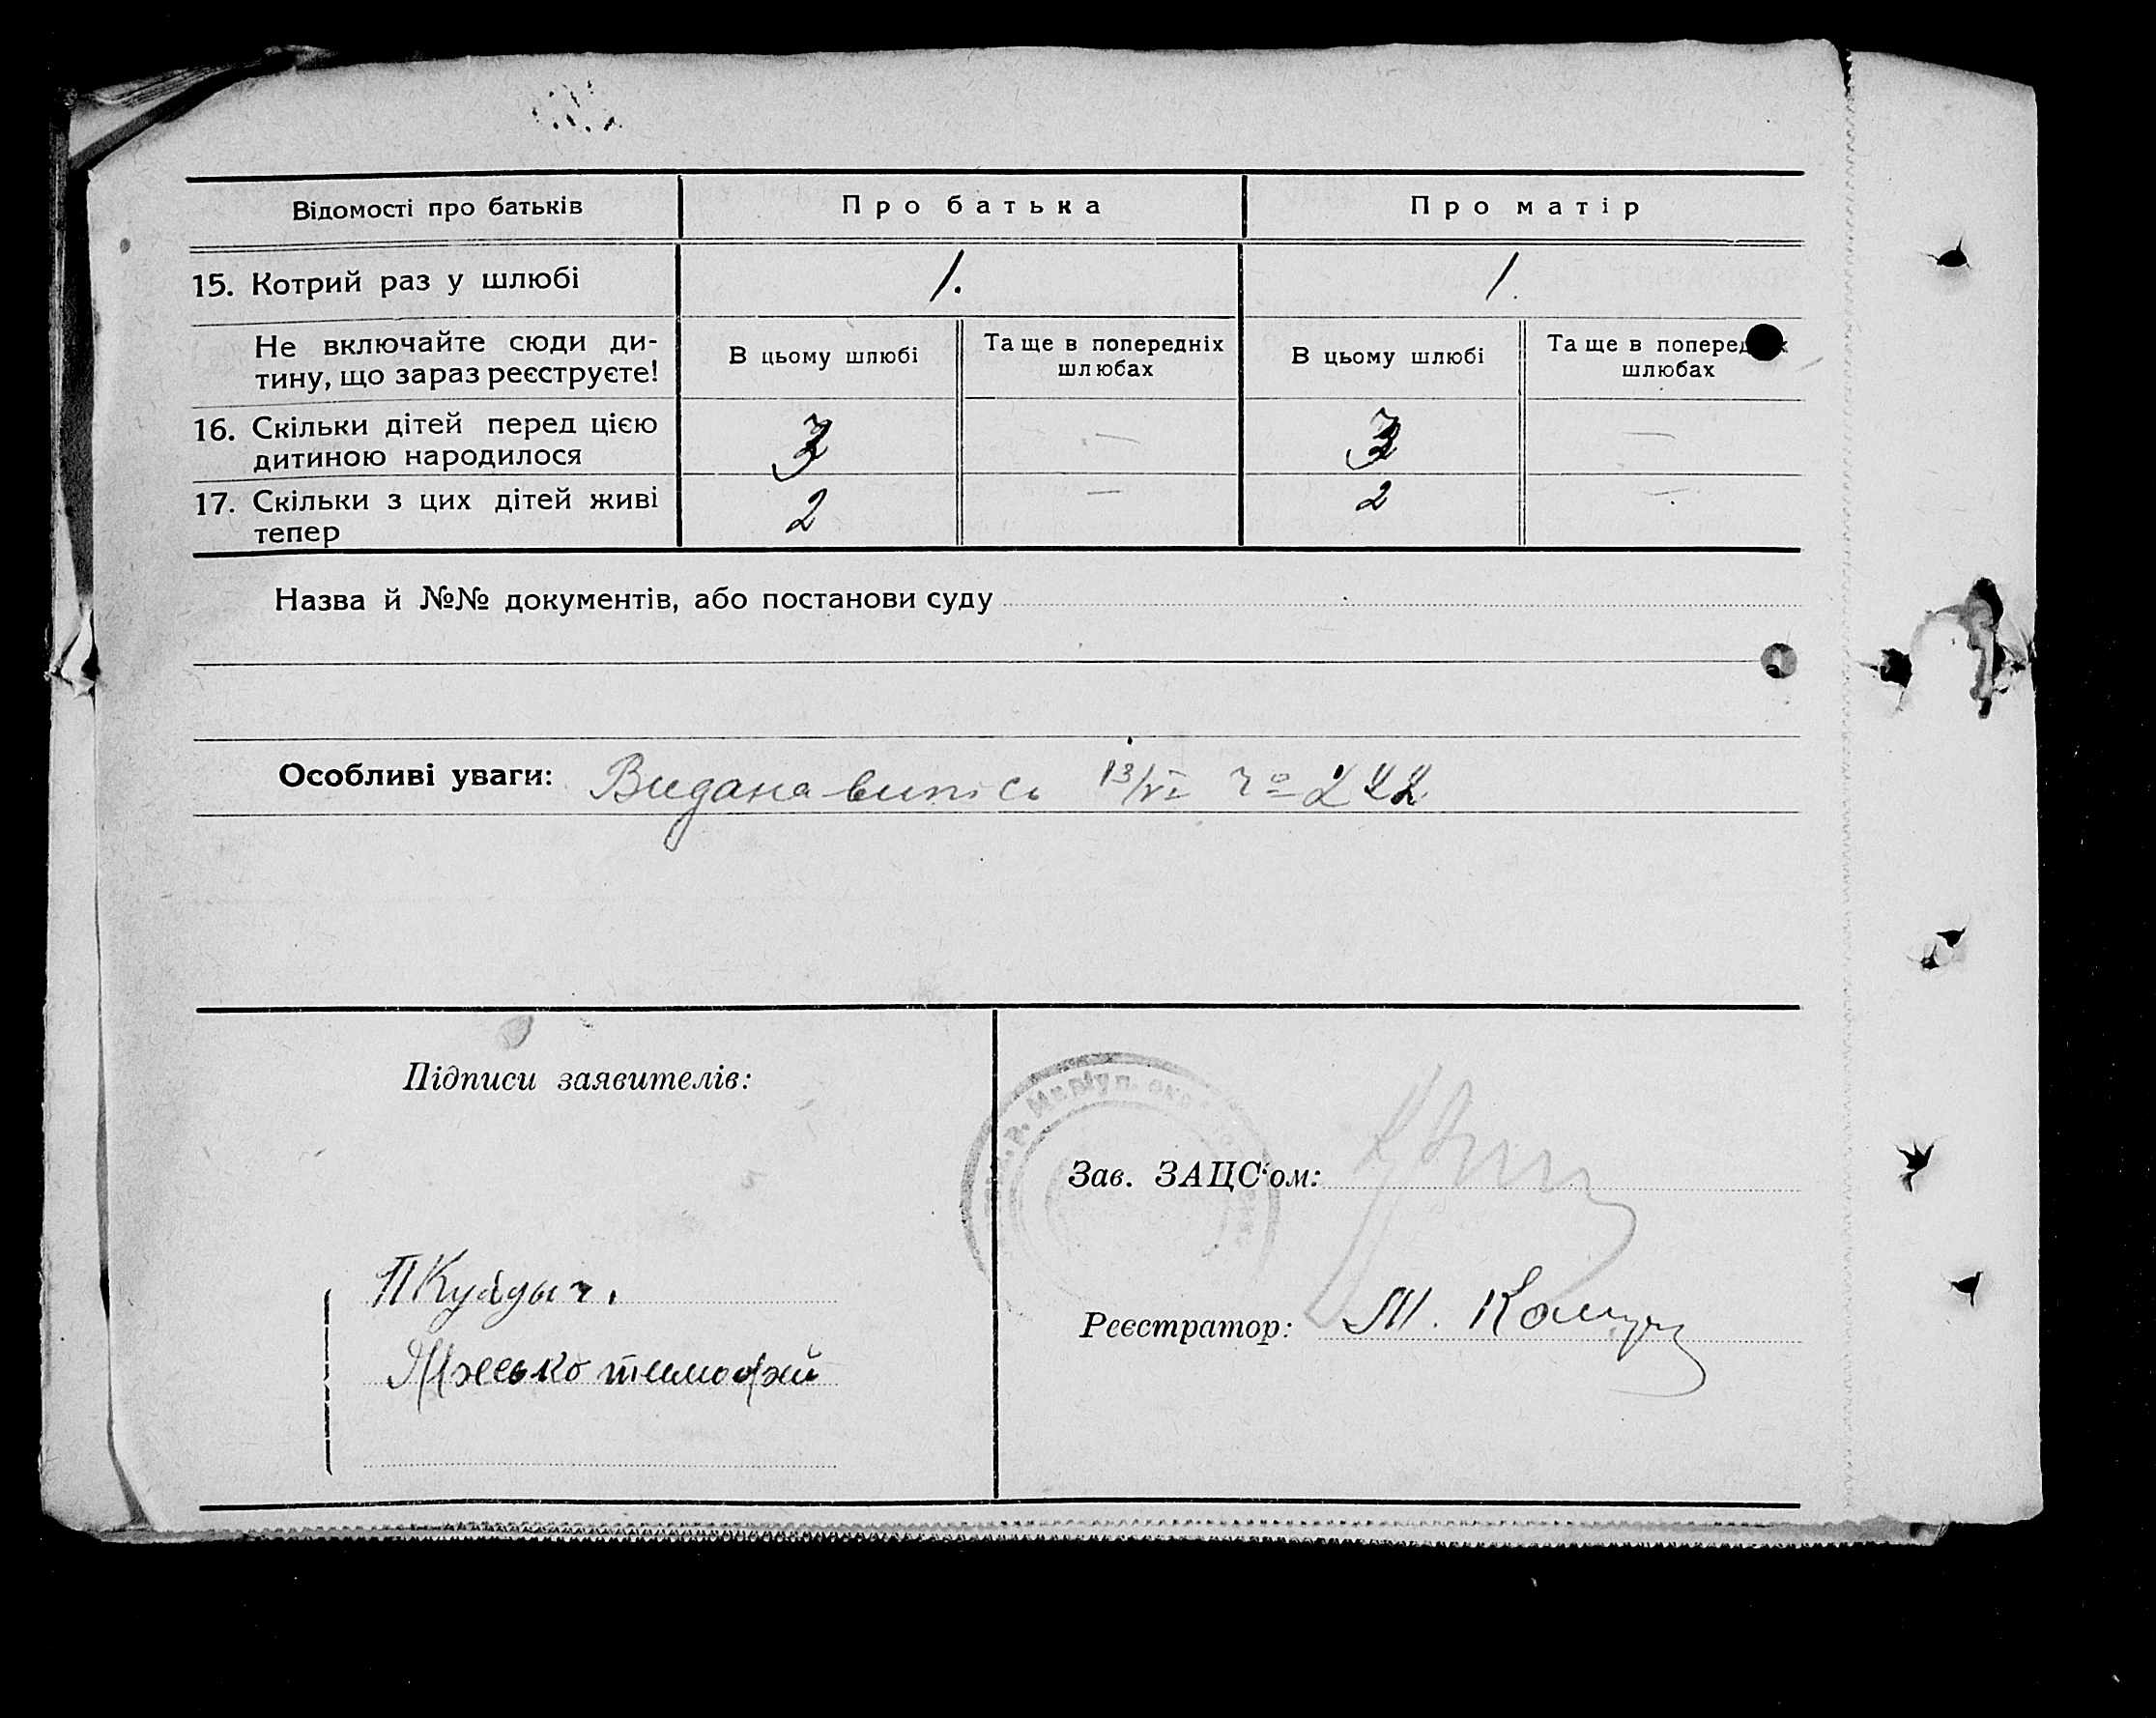 Відомості про батьків
Про батька
Про матір
15. Котрий раз у шлюбі
1.
1.
Не включайте сюди ди-
тину, що зараз реєструєте!
В цьому шлюбі
Та ще в попередніх
шлюбах
В цьому шлюбі
Та ще в поперед
шлюбах
16. Скільки дітей перед цією
дитиною народилося
3
—
3
—
17. Скільки з цих дітей живі
тепер
2
—
2
—
Назва й №№ документів, або постанови суду
Особливі уваги: Видана випісь 13/VI
Підписи заявителів:
Маріуп. окр
Зав. ЗАЦС'ом:
Реєстратор: М.
тимофэй